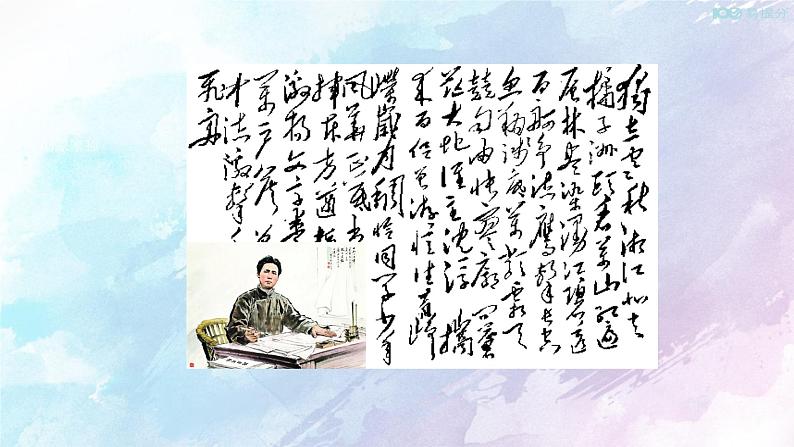 独立寒秋湘江北去
橘子洲头看万山红遍
层林尽染漫江碧透
百舸争流鹰击长空
鱼翔浅底万类霜天
竞自由怅寥廓问苍
茫大地谁主沉浮携
来百侣曾游忆往昔峥
嵘岁月稠恰同学少年
风华正茂书
挥斥方遒指
激扬文字粪
万户侯曾
中流
飞舟